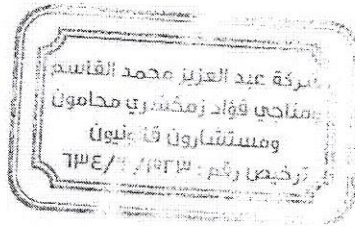 شركة عبد العزيز محمد القاسم
ومناحي فؤاد زمخشري محامون
ومستشارون قانونيون
ترخيص رقم :